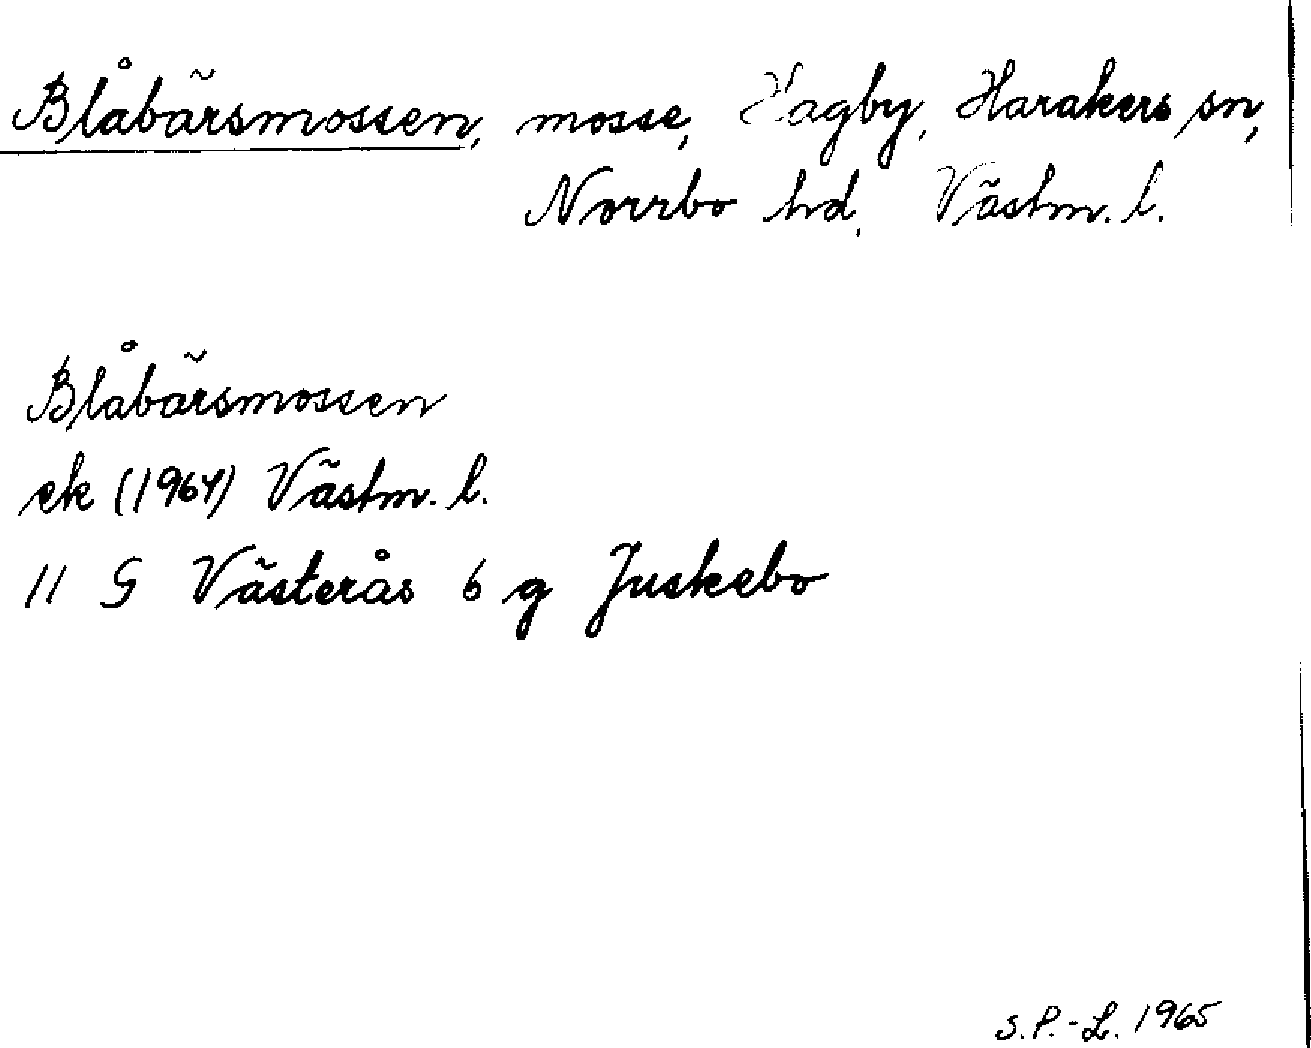 Blåbärsmossen, mosse, Hagby, Harakers sn,
Norrbo hd, Västm. l.
Blåbärsmossen
ek (1964) Västm. l.
11 G Västerås 6 g Juskebo
S.P.-L. 1965